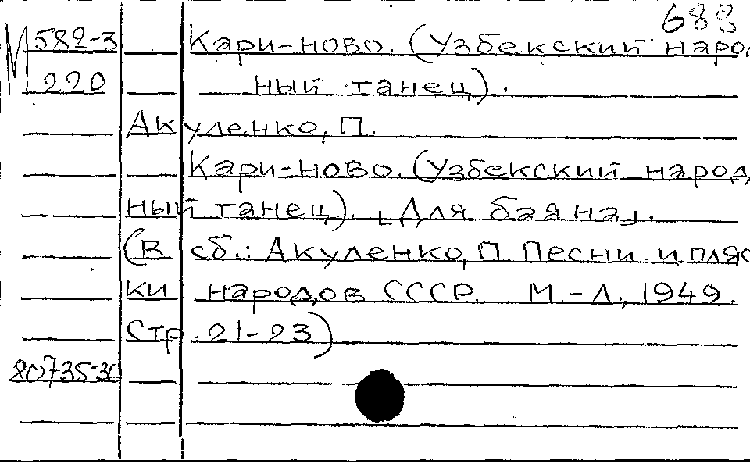 688
М 582-3 Кари-ново. (Узбекский народ
220 ный танец).
Акуленко, П.
Кари-ново. (Узбекский народ
ный танец). [Для баяна].
(В сб.: Акуленко, П. Песни и пляс
ки народов СССР. М.-Л., 1949.
Стр. 21-23)